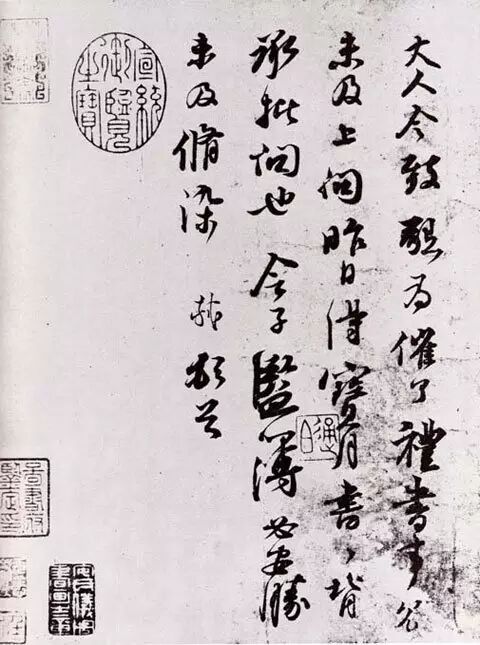 大人令致懇為催了禮書事冗
未及上問昨日得寶月書〻背
承批問也令子監簿必安勝
未及脩染軾頓首
宣統
御覽
之寶